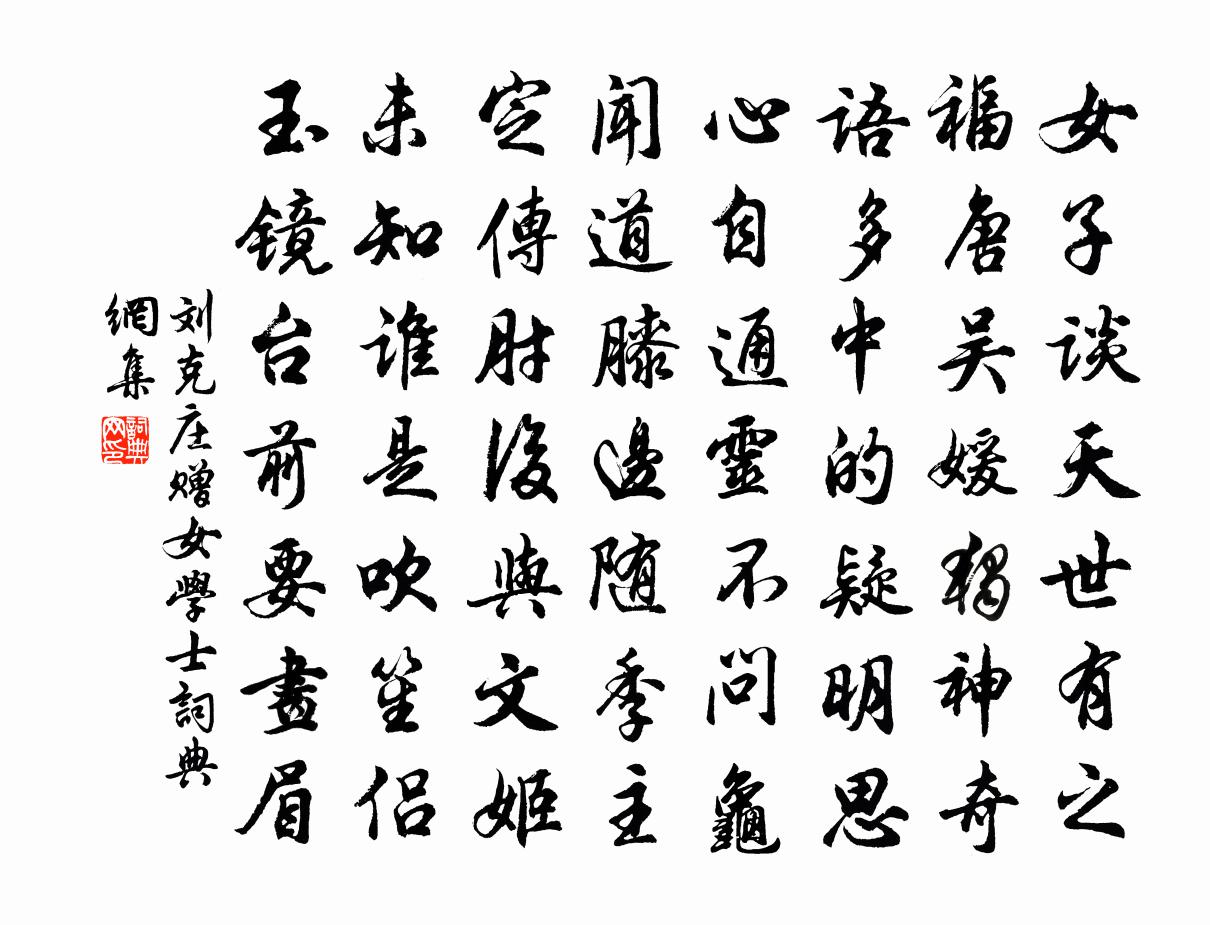 女子谈天世有之
福唐吴媛獨神奇
语多中的疑明思
心自通靈不问龜
闻道膝邊随季主
定傳肘後與文姬
未知谁是吹笙侣
玉镜台前要畫眉
刘克庄赠女學士詞典
網集
詞典网印